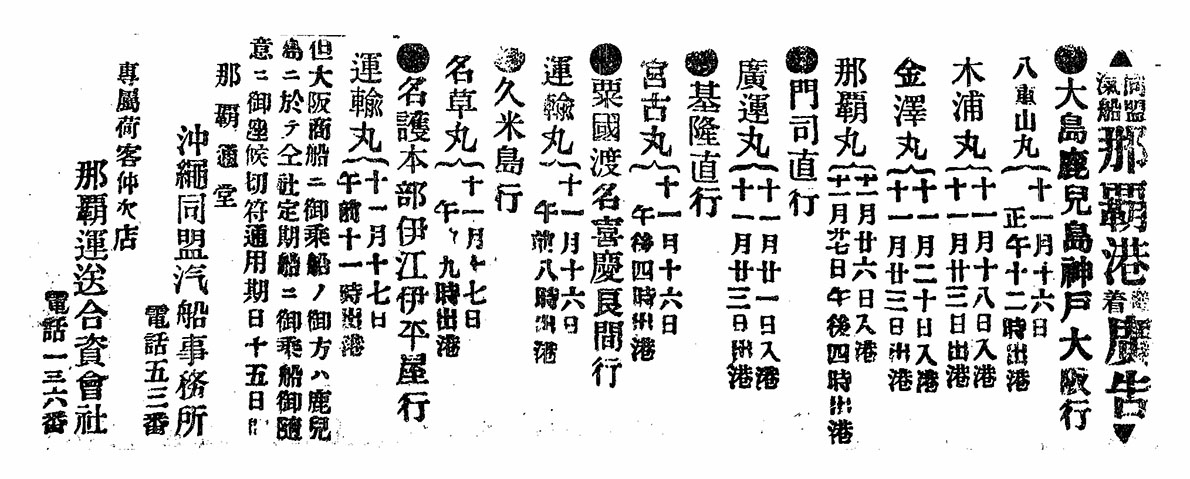 ▲同盟汽船那覇港發着廣告▼
●大島鹿兒島神戸大阪行
八重山丸{十一月十六日正午十二時出港
木浦丸{十一月十八日入港十一月廿三日出港
金澤丸{十一月二十日入港十一月廿三日出港
那覇丸{十一月廿六日入港十一月廿七日午後四時出港
●門司直行
廣運丸{十一月廿一日入港十一月廿三日出港
●基隆直行
宮古丸{十一月十六日午後四時出港
●粟國渡名喜慶良間行
運輸丸{十一月十六日午前八時出港
●久米島行
名草丸{十一月十七日午前九時出港
●名護本部伊江伊平屋行
運輸丸{十一月十七日午前十一時出港
但大阪商船ニ御乘船ノ御方ハ鹿兒
島ニ於テ仝社定期船ニ御乘船御隨
意ニ御座候切符通用期日十五日間
那覇通堂
沖繩同盟汽船事務所
電話五三番
專屬荷客仲次店
那覇運送合資會社
電話一三六番